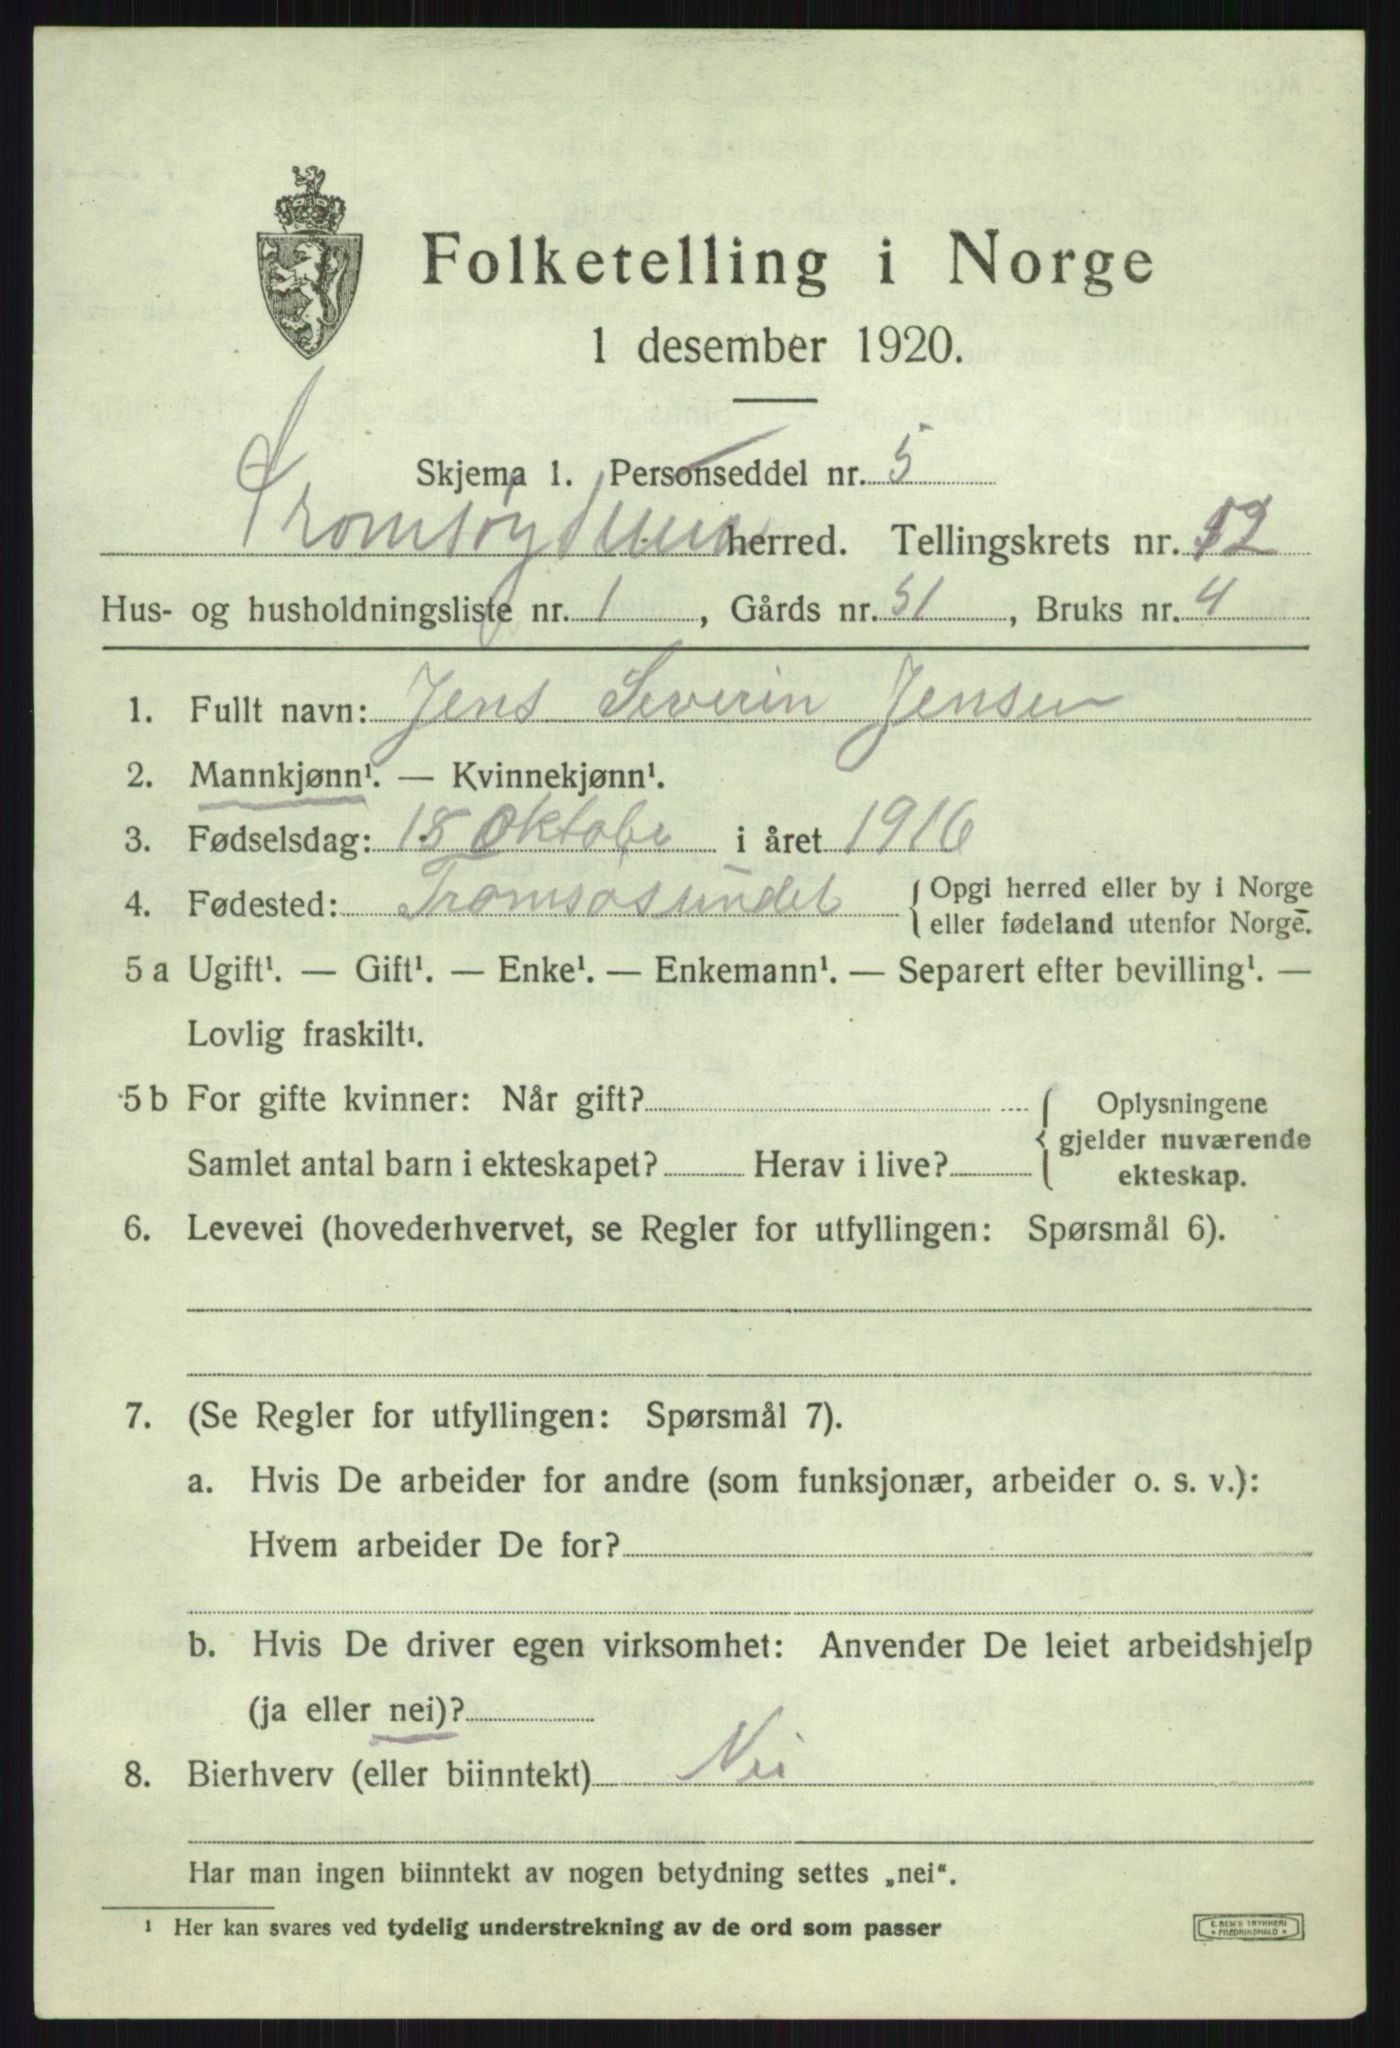 Folketelling i Norge
1 desember 1920.
Skjema 1. Personseddel nr. 5
herred. Tellingskrets nr. 12
Hus- og husholdningsliste nr. 1, Gårds nr. 51, Bruks nr. 4
1. Fullt navn: Jens Severin Jensen
2. Mannkjønn¹. — Kvinnekjønn¹.
3. Fødselsdag: 18 Oktobr i året 1916
4. Fødested: Tromsøsundet { Opgi herred eller by i Norge
eller fødeland utenfor Norge.
5 a Ugift¹. — Gift¹. — Enke¹. — Enkemann¹. — Separert efter bevilling¹. —
Lovlig fraskilt¹.
5 b For gifte kvinner: Når gift? { Oplysningene
gjelder nuværende
Samlet antal barn i ekteskapet? Herav i live? ekteskap.
6. Levevei (hovederhvervet, se Regler for utfyllingen: Spørsmål 6).
7. (Se Regler for utfyllingen: Spørsmål 7).
a. Hvis De arbeider for andre (som funksjonær, arbeider o. s. v.):
Hvem arbeider De for?
b. Hvis De driver egen virksomhet: Anvender De leiet arbeidshjelp
(ja eller nei)?
8. Bierhverv (eller biinntekt) Nei
Har man ingen biinntekt av nogen betydning settes „nei“.
¹ Her kan svares ved tydelig understrekning av de ord som passer
E. SEM'S TRYKKERI
* FREDRIKSHALD *